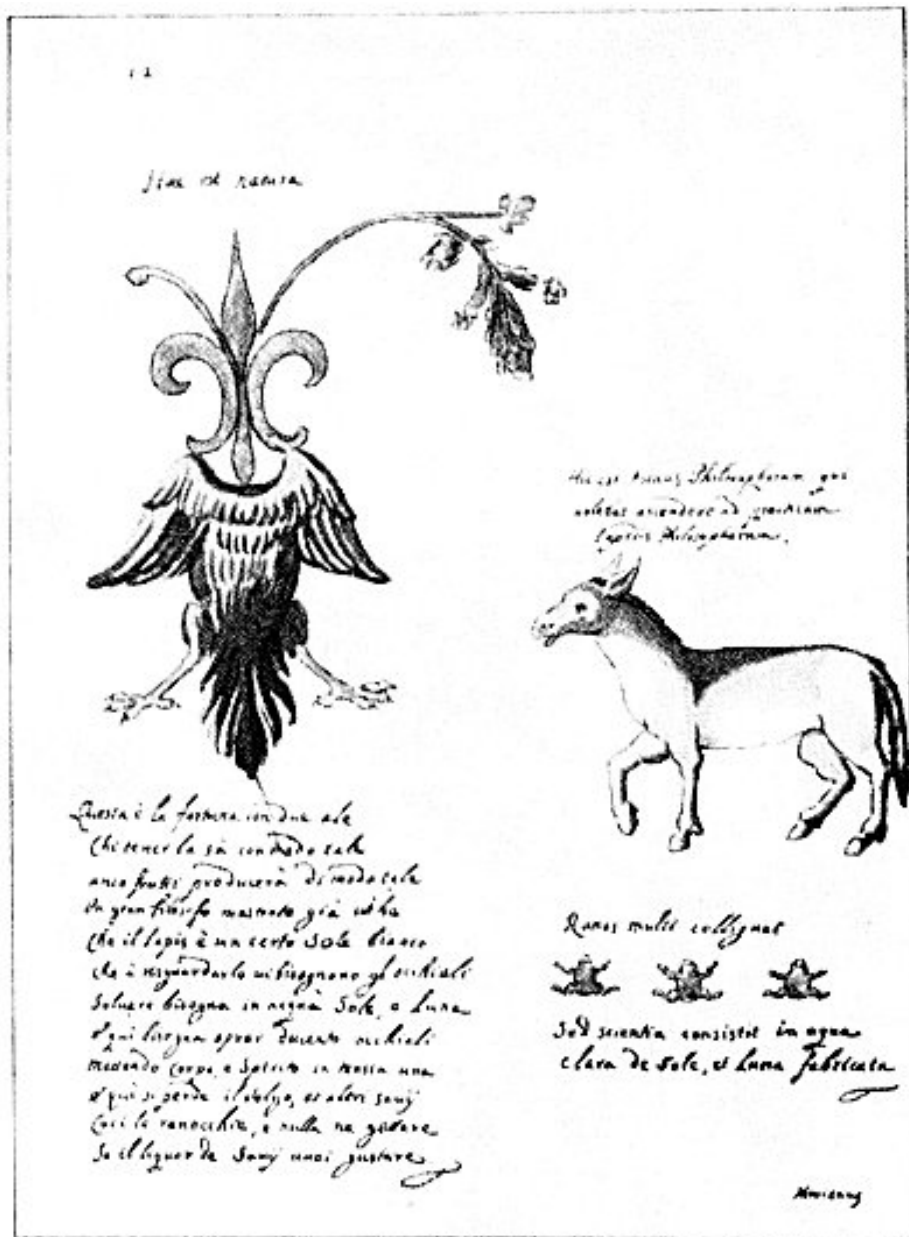 12
Hac est natura
Hic est Asinus Philosophorum qui
ascendere ad
Lapidis Philosophorum.
Questa è la fortuna con due ale
Chi tener la sà con
anco frutti producerà di modo tale
Un gran filosofo mostrato già
Che il lapis è un certo Sole bianco
che à risguardarlo vi bisognano gl'occhiali
Soluere bisogna in acqua Sole, e Luna
e qui bisogna oprar ducento occhiali
mettendo corpo, e Spirito in una
e qui si perde il volgo, et altri
le ranocchie, e nulla
Se il liquor de gustare
Ranas multi colligunt
Sed scientia consistit in aqua
clara de Sole, et Luna fabricata